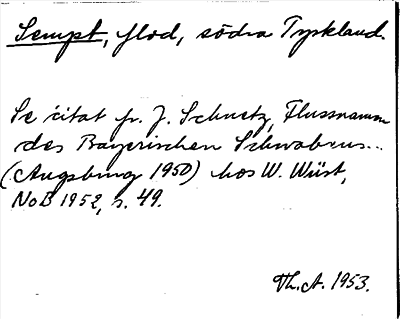 Sempt, flod, södra Tyskland.
Se citat fr. J. Schnetz, Flussnamen
des Bayerischen Schwabens...
(Augsburg 1950) hos W. Wüst,
NoB 1952, s. 49.
Th. A. 1953.